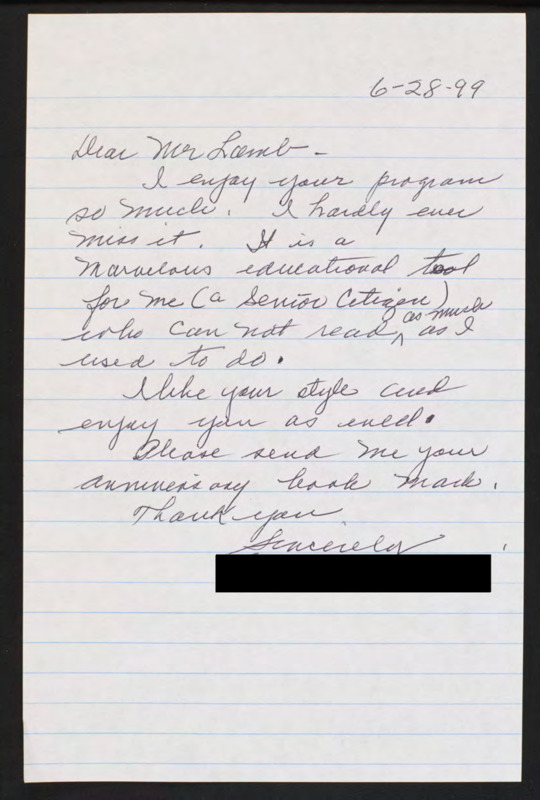 6-28-99
Dear Mr Lamb-
I enjoy your program
so much. I hardly ever
miss it. It is a
marvelous educational tool
for me (a Senior Citizen)
who can not read as much as I
used to do.
I like your style and
enjoy you as well.
Please send me your
anniversary book mark.
Thank you
Sincerely